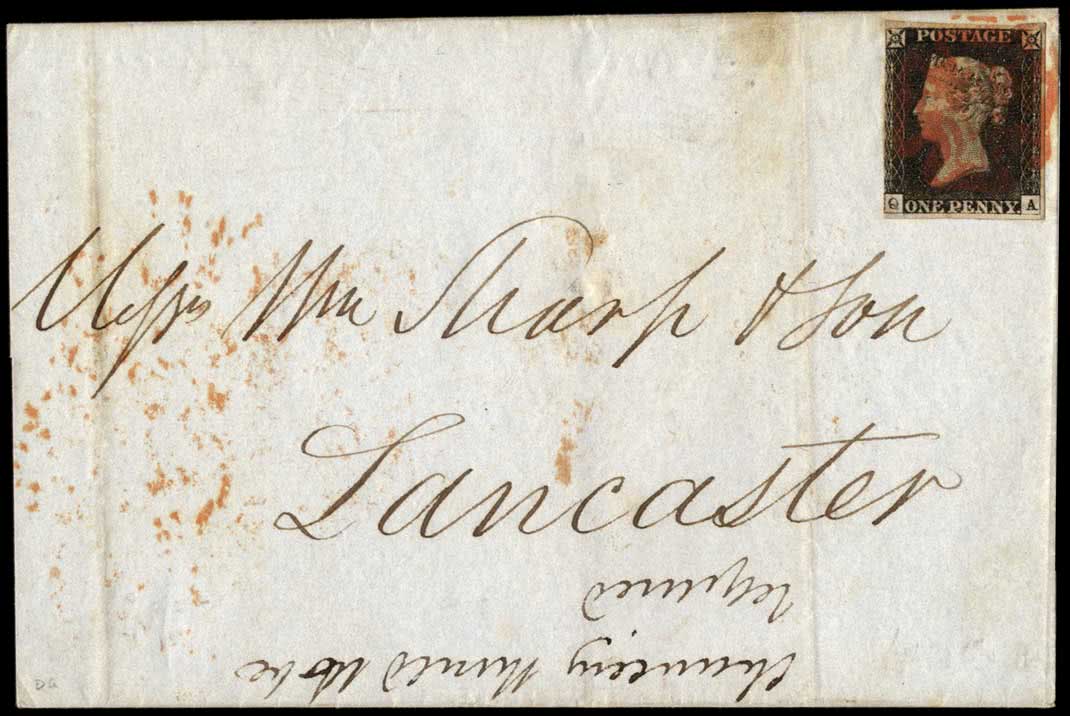 POSTAGE
ONE PENNY
Q A
Messrs Wm Sharp & Son
Lancaster
required
to be
DG